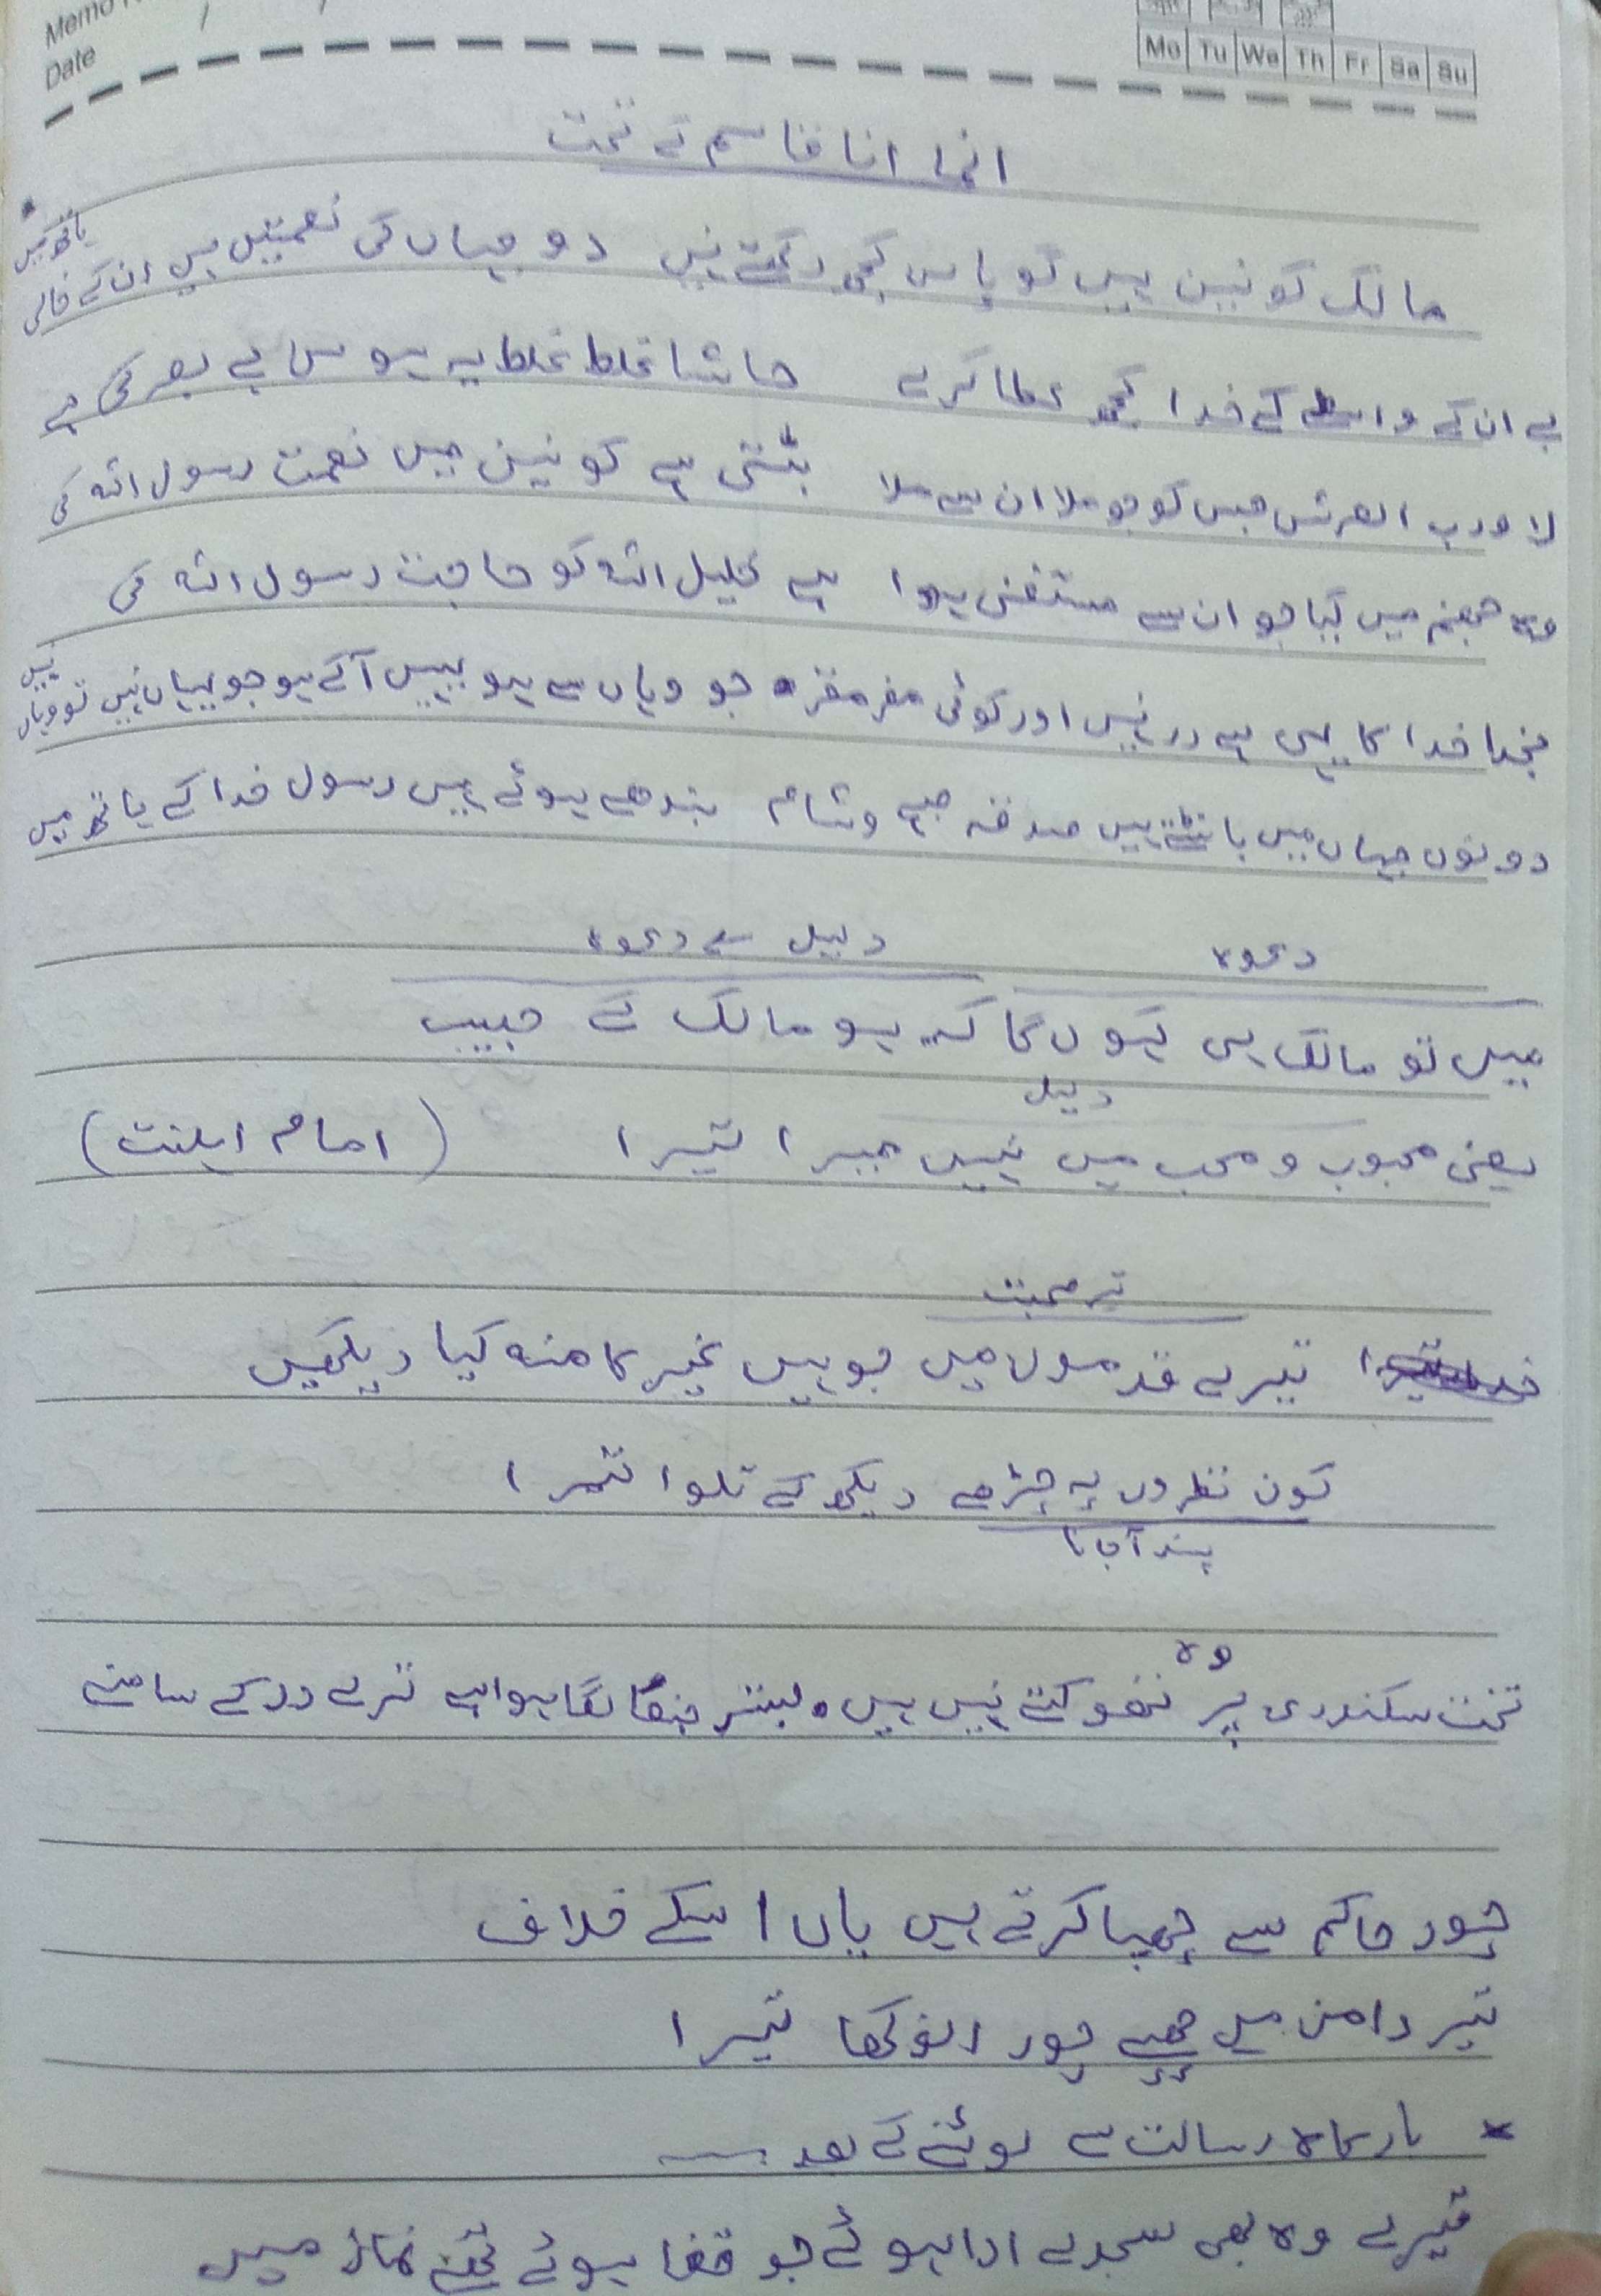 Memo
Date / /
Mo Tu We Th Fr Sa Su
انما انا قاسم کے تحت
مالک کونین ہیں گو پاس کچھ رکھتے نہیں دو جہاں کی نعمتیں ہیں ان کے خالی ہاتھ میں
بے ان کے واسطے کے خدا کچھ عطا کرے حاشا غلط غلط یہ ہوس بے بصر کی ہے
لا ورب العرش جس کو جو ملا ان سے ملا بٹتی ہے کونین میں نعمت رسول اللہ کی
وہ جہنم میں گیا جو ان سے مستغنی ہوا ہے خلیل اللہ کو حاجت رسول اللہ کی
بخدا خدا کا یہی ہے در نہیں اور کوئی مفر مقر جو وہاں سے ہو یہیں آکے ہو جو یہاں نہیں تو وہاں نہیں
دونوں جہاں میں بانٹتے ہیں صدقہ صبح و شام بندھے ہوئے ہیں رسول خدا کے ہاتھ میں
دعوہ دلیل سے دعوہ
میں تو مالک ہی کہوں گا کہ ہو مالک کے حبیب
دلیل
یعنی محبوب و محب میں نہیں میرا تیرا (امام اہلنت)
تیر محبت
تیرے قدموں میں جو ہیں غیر کا منہ کیا دیکھیں
کون نظروں پہ چڑھے دیکھ کے تلوا تمرا
پسند آجانا
وہ
تخت سکندری پر تھوکتے نہیں ہیں بستر جنکا لگا ہوا ہے ترے در کے سامنے
چور حاکم سے چھپا کرتے ہیں یاں اسکے خلاف
تیر دامن میں چھپے چور انوکھا تیرا
* بارگاہ رسالت سے لوٹنے کے بعد
تیرے وہ بھی سجدے ادا ہوئے جو قضا ہوئے تھے نماز میں